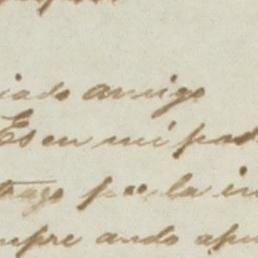 iado amigo
Es en mi pod
tengo por la in
mpre ando apu